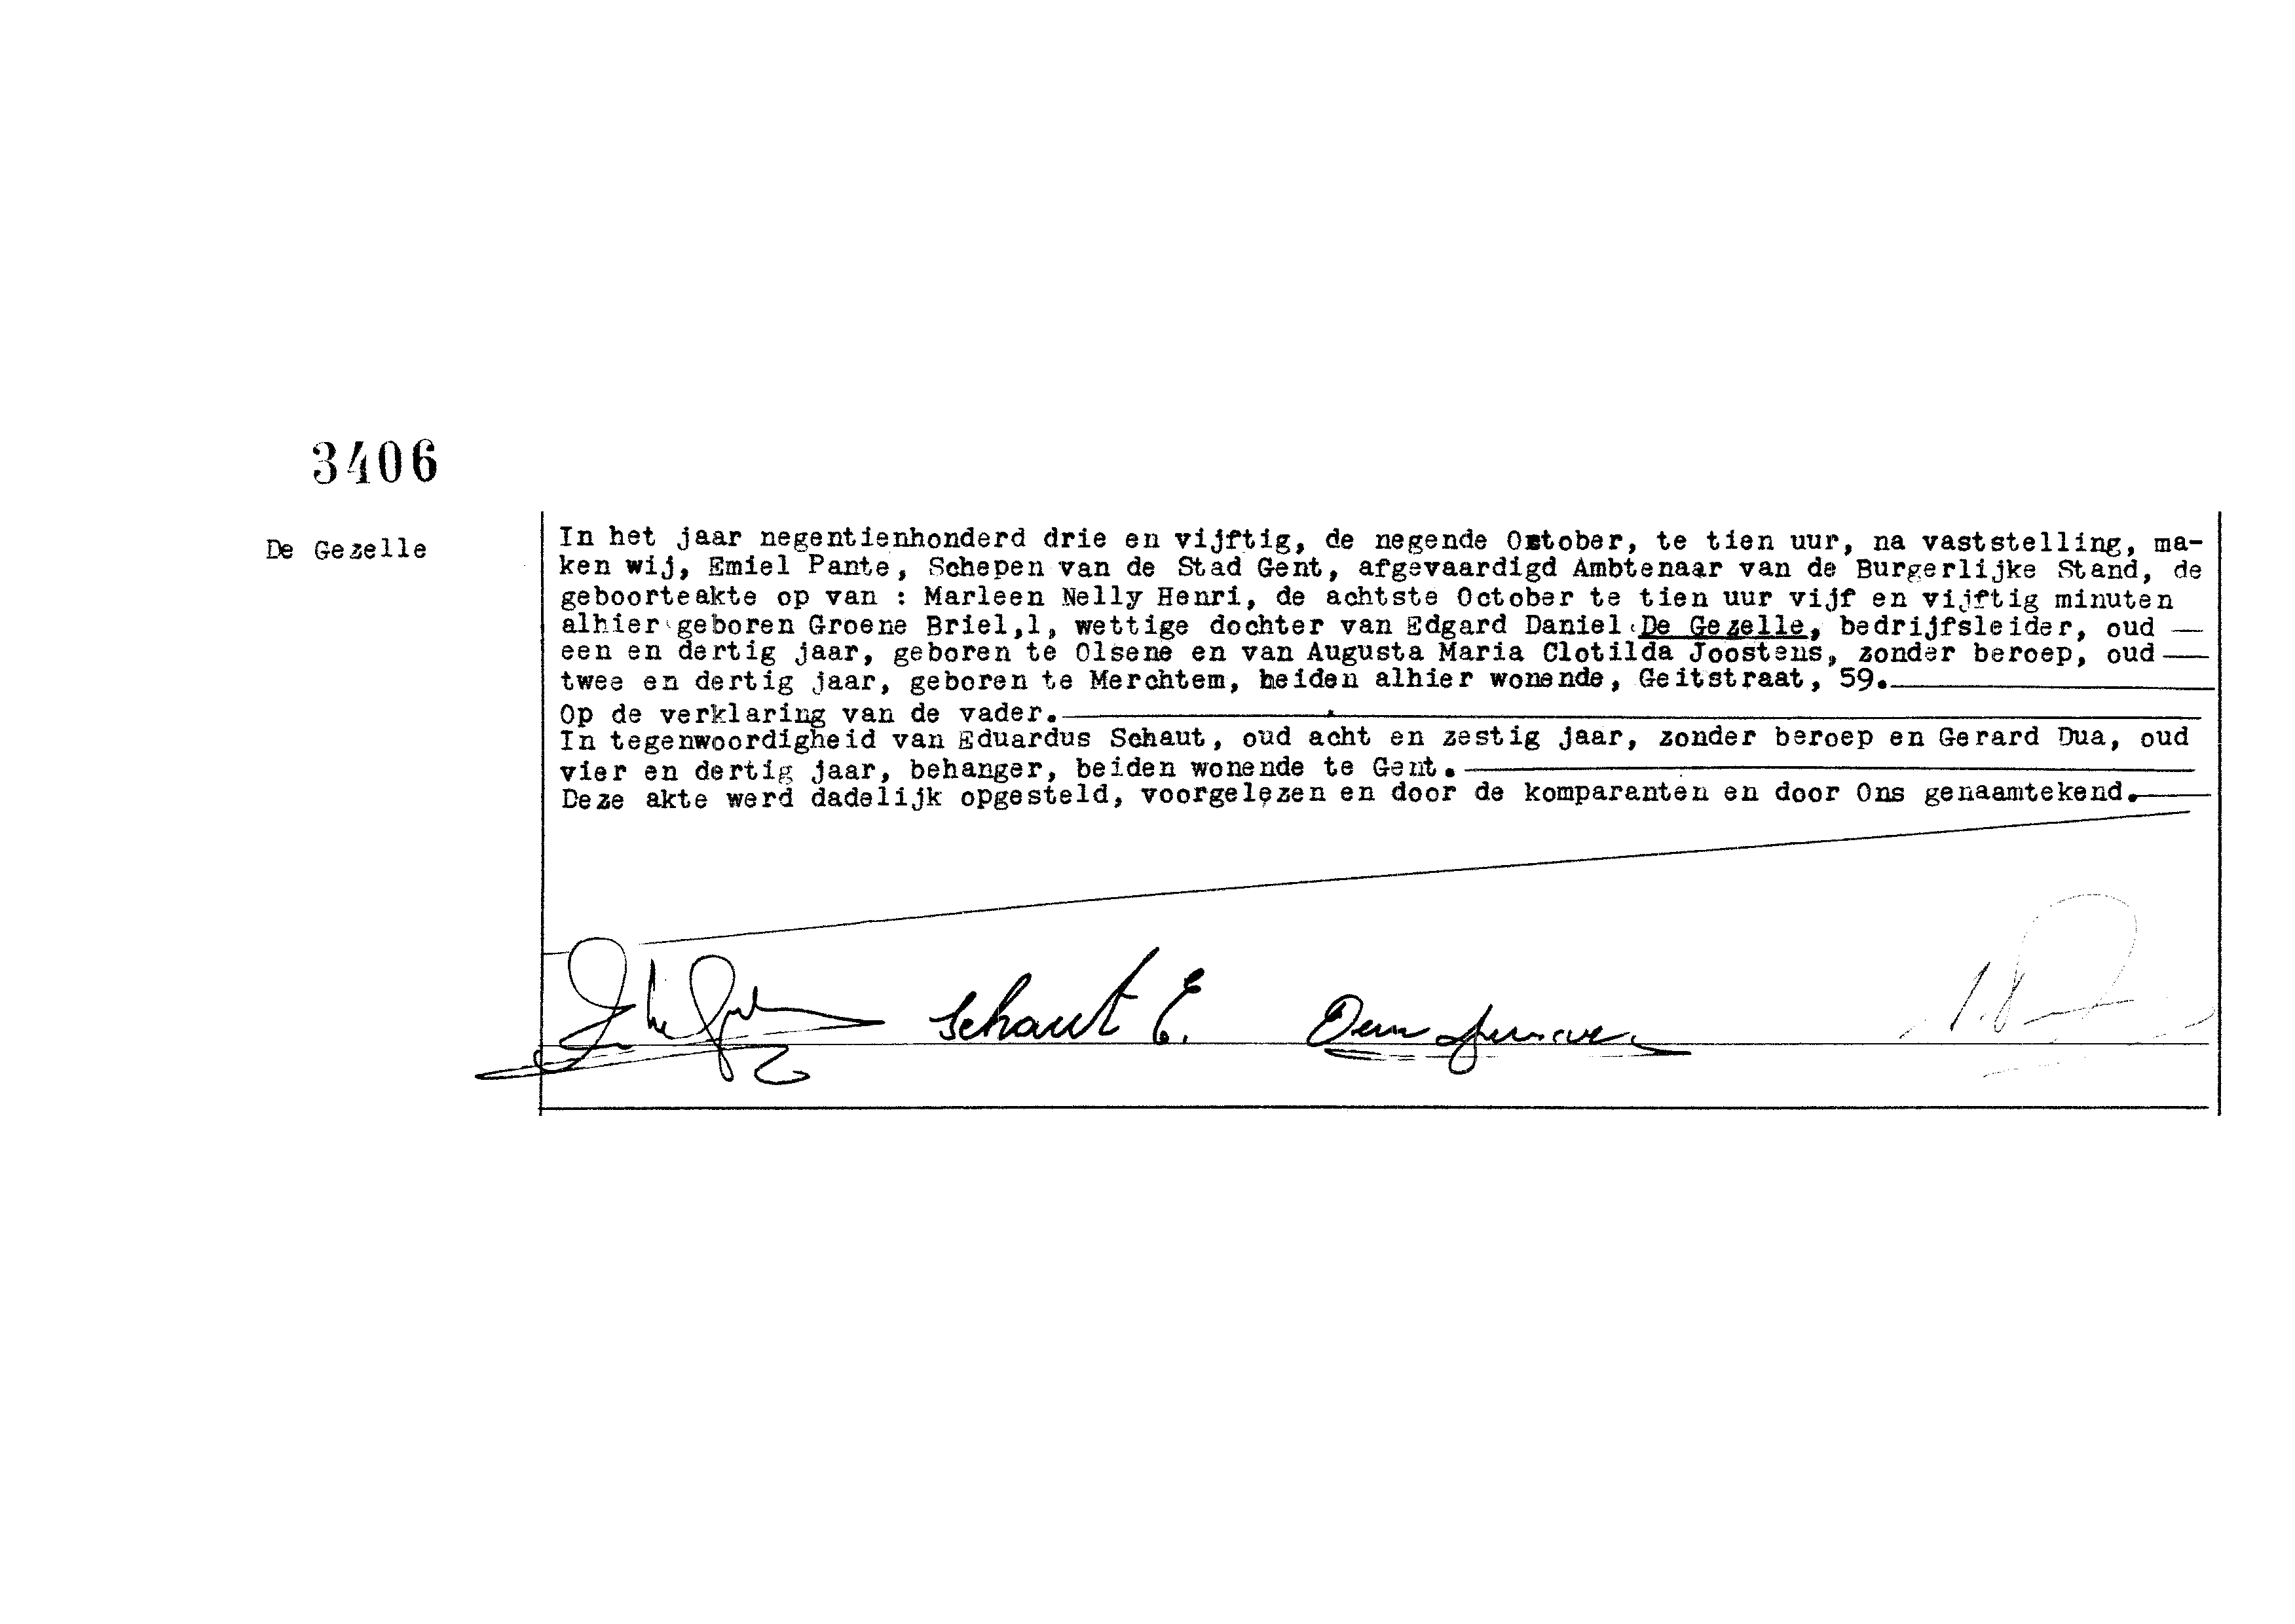 3406
De Gezelle
In het jaar negentienhonderd drie en vijftig, de negende October, te tien uur, na vaststelling, ma-
ken wij, Emiel Pante, Schepen van de Stad Gent, afgevaardigd Ambtenaar van de Burgerlijke Stand, de
geboorteakte op van : Marleen Nelly Henri, de achtste October te tien uur vijf en vijftig minuten
alhier geboren Groene Briel,1, wettige dochter van Edgard Daniel De Gezelle, bedrijfsleider, oud
een en dertig jaar, geboren te Olsene en van Augusta Maria Clotilda Joostens, zonder beroep, oud
twee en dertig jaar, geboren te Merchtem, beiden alhier wonende, Geitstraat, 59.
Op de verklaring van de vader.
In tegenwoordigheid van Eduardus Schaut, oud acht en zestig jaar, zonder beroep en Gerard Dua, oud
vier en dertig jaar, behanger, beiden wonende te Gent.
Deze akte werd dadelijk opgesteld, voorgelezen en door de komparanten en door Ons genaamtekend.
Schaut E.